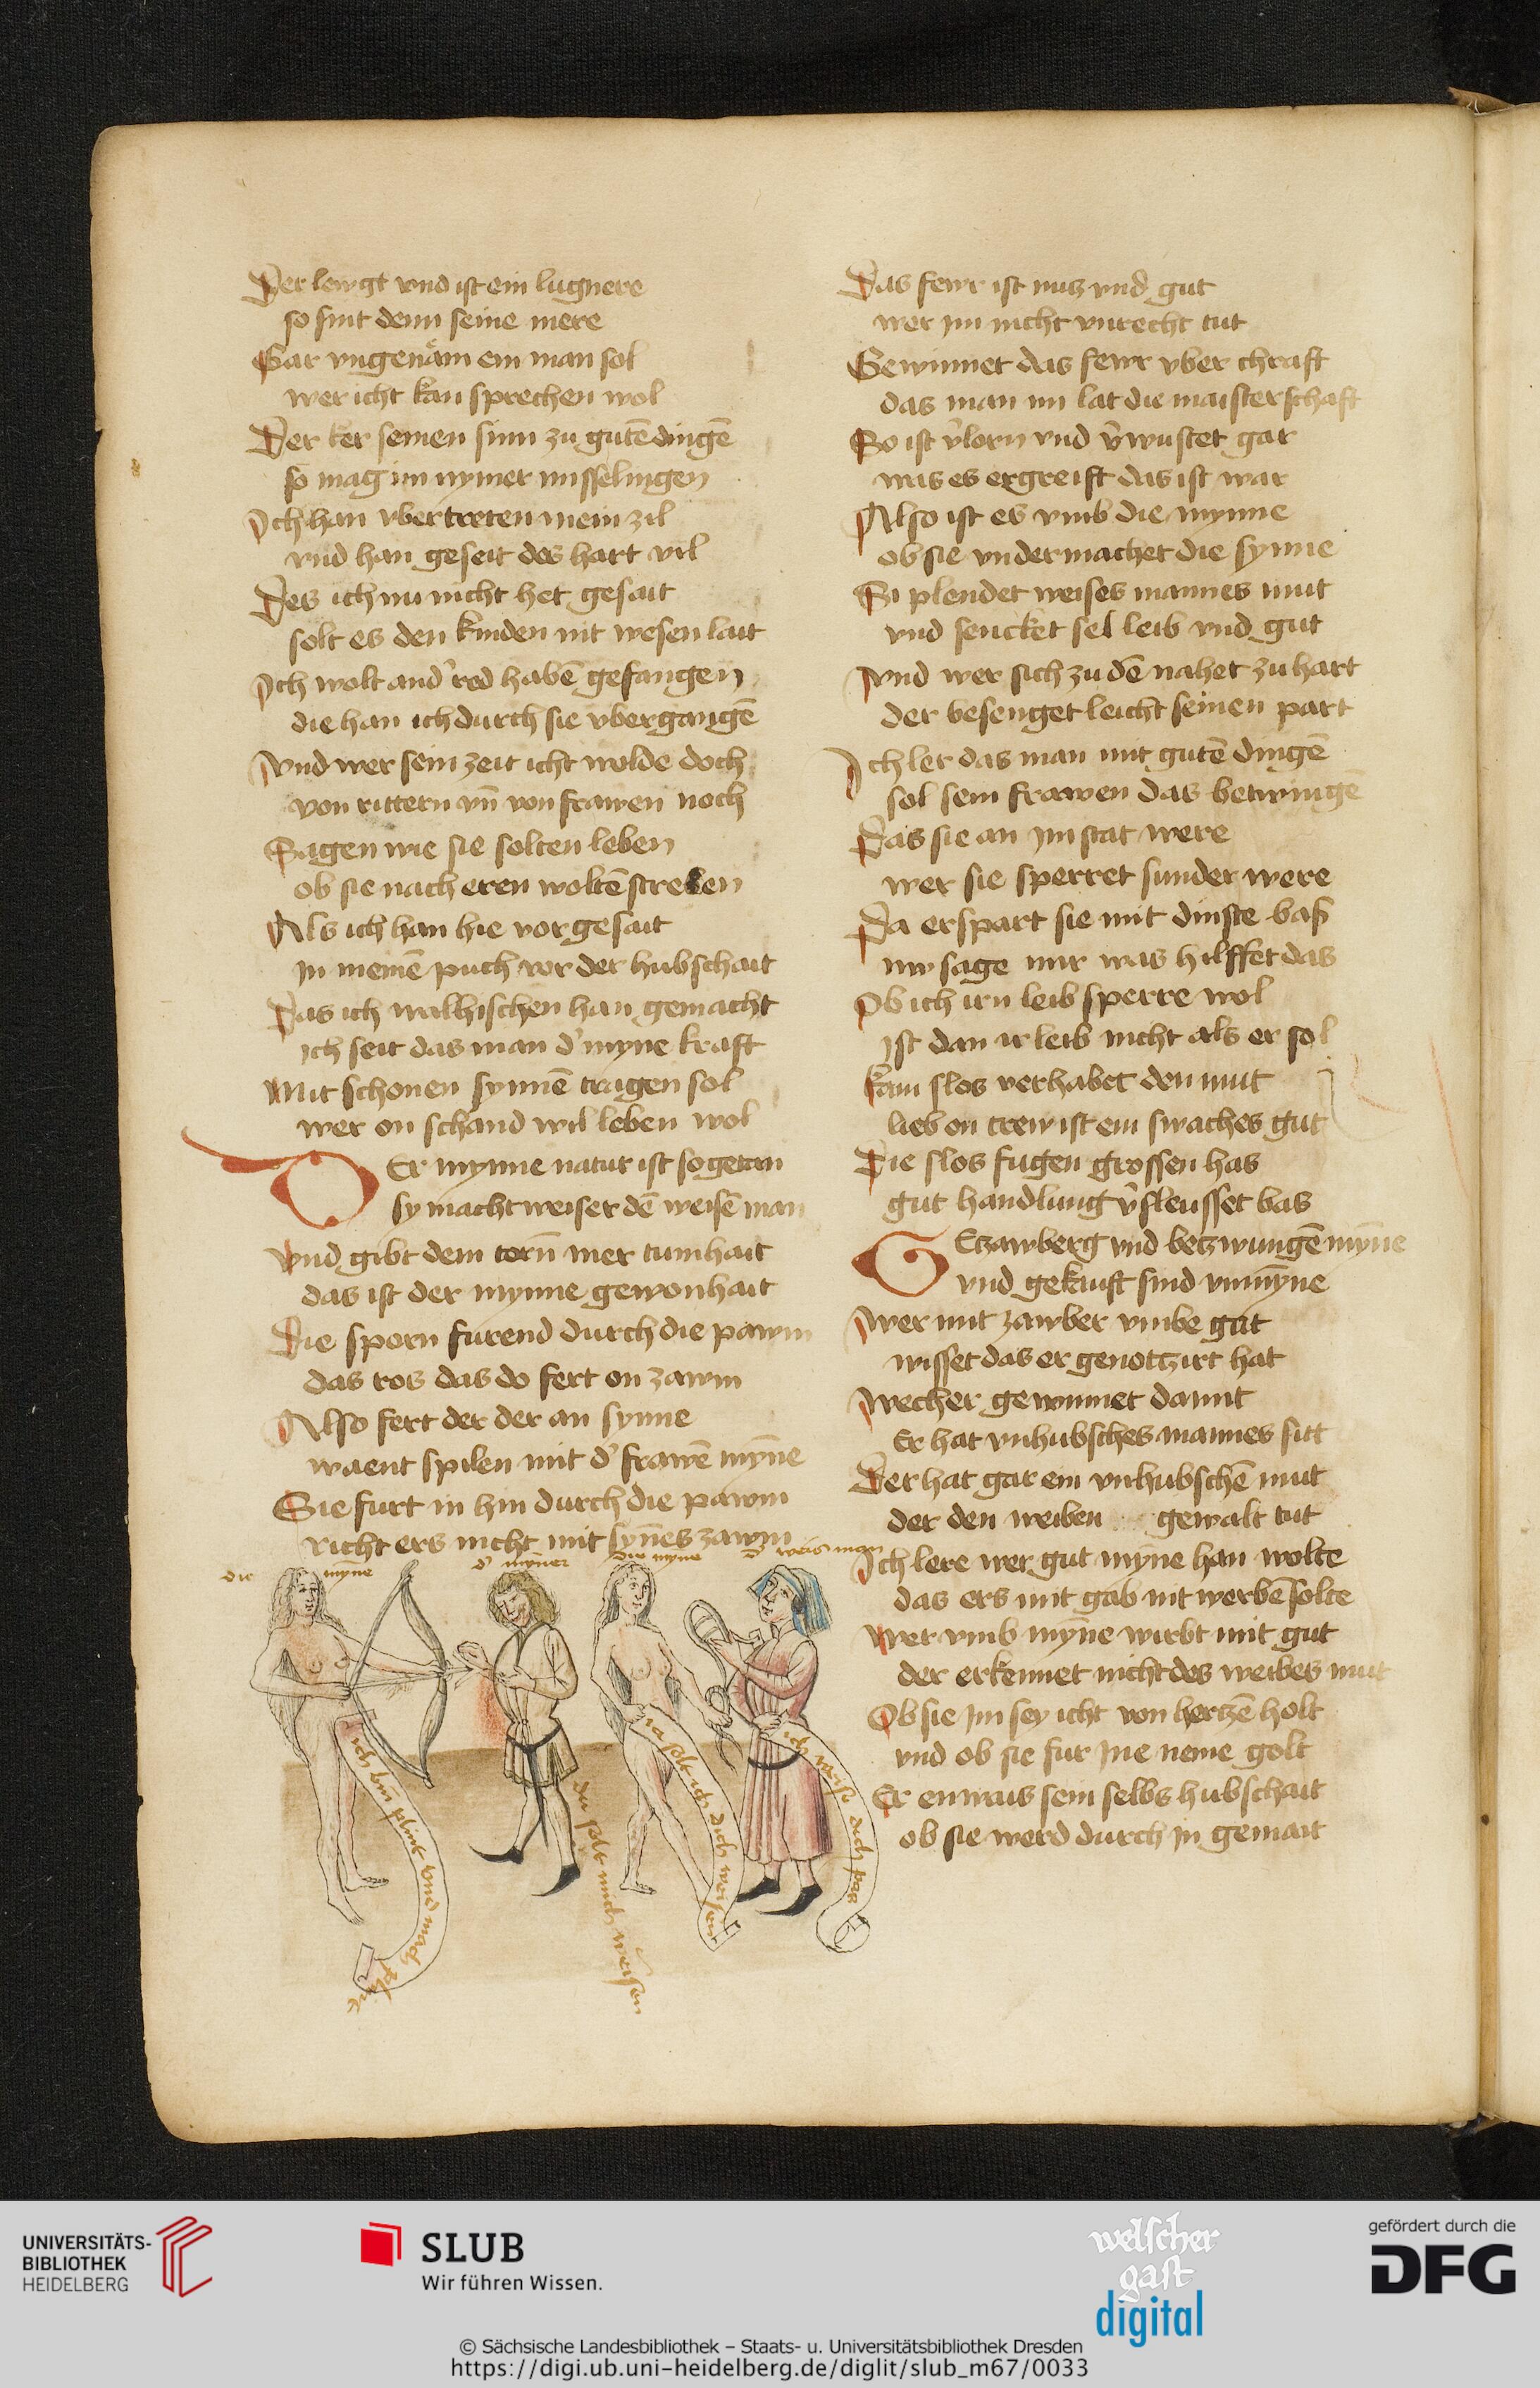 Der lewgt vnd ist ein lugnere
so sint denn seine mere
Gar vngenäm ein man sol
wer icht kan sprechen wol
Der ker seinen sinn zu gutē dingē
so mag im nymer misselingen
Ich han vbertreten mein zil
vnd han geseit des hart vil
Des ich nu nicht het gesait
solt es den kinden nit wesen lait
Ich wolt and̓ red habē gefangen
die han ich durch sie vbergangē
vnd wer sein zeit icht wolde doch
von rittern vn̄ von frawen noch
Sagen wie sie solten leben
ob sie nach eren woltē streben
Als ich han hie vor gesait
in meinē puch vor der hubschait
Das ich walhischen han gemacht
ich seit das man d̓ myne kraft
Mit schonen synnē tragen sol
wer on schand wil leben wol
Der mynne natur ist so getan
sy macht weiser dē weisē man
vnd gibt dem torn̄ mer tumhait
das ist der mynne gewonhait
Die sporn furend durch die pawm
das ros das do fert on zawm
Also fert der der an synne
waent spilen mit d̓ frawē myn̄e
Sie furt in hin durch die pawm
richt ers nicht mit syn̄es zawm
die myn̄e
d̓ myner
die myne
d̓ weis man
ich bin plint vnd mach plint
du solt mich weisen
ia solt ich dich weisen
ich weise dich
Das fewr ist nutz vnd gut
wer im nicht vnrecht tut
Gewinnet das fewr vber chraft
das man im lat die maisterschaft
So ist v̓lorn vnd v̓wustet gar
was es ergreift das ist war
Also ist es vmb die mynne
ob sie vndermachet die synne
Si plendet weises mannes mut
vnd sencket sel leib vnd gut
vnd wer sich zu dē nahet zu hart
der besenget leicht seinen part
Ich ler das man mit gutē dingē
sol sein frawen das betwingē
Das sie an im stat were
wer sie sperret sunder were
Da erspart sie mit dinste baß
nw sage mir was hilffet das
Ob ich irn leib sperre wol
ist dan ir leib nicht als er sol
kain slos verhabet den mut
lieb on trew ist ein swaches gut
Die slos fugen grossen has
gut handlung v̓sleusset bas
Getzawberg vnd betzwungē myn̄e
vnd gekauft sind vnmyn̄e
wer mit zawber vmbe gat
wisset das er genottzirt hat
wecher gewinnet damit
Er hat vnhubsches mannes sitt
Der hat gar ein vnhubschē mut
der den weiben gewalt tut
Ich lere wer gut myn̄e han wolte
das ers mit gab nit werbē solte
wer vmb myn̄e wirbt mit gut
der erkennet nicht des weibes mut
Ob sie im sey icht von hertzē holt
vnd ob sie fur ine neme golt
Er enwais sein selbs hubschait
ob sie werd durch in gemait
UNIVERSITÄTS-
BIBLIOTHEK
HEIDELBERG
SLUB
Wir führen Wissen.
welscher
gast
digital
gefördert durch die
DFG
© Sächsische Landesbibliothek – Staats- u. Universitätsbibliothek Dresden
https://digi.ub.uni-heidelberg.de/diglit/slub_m67/0033